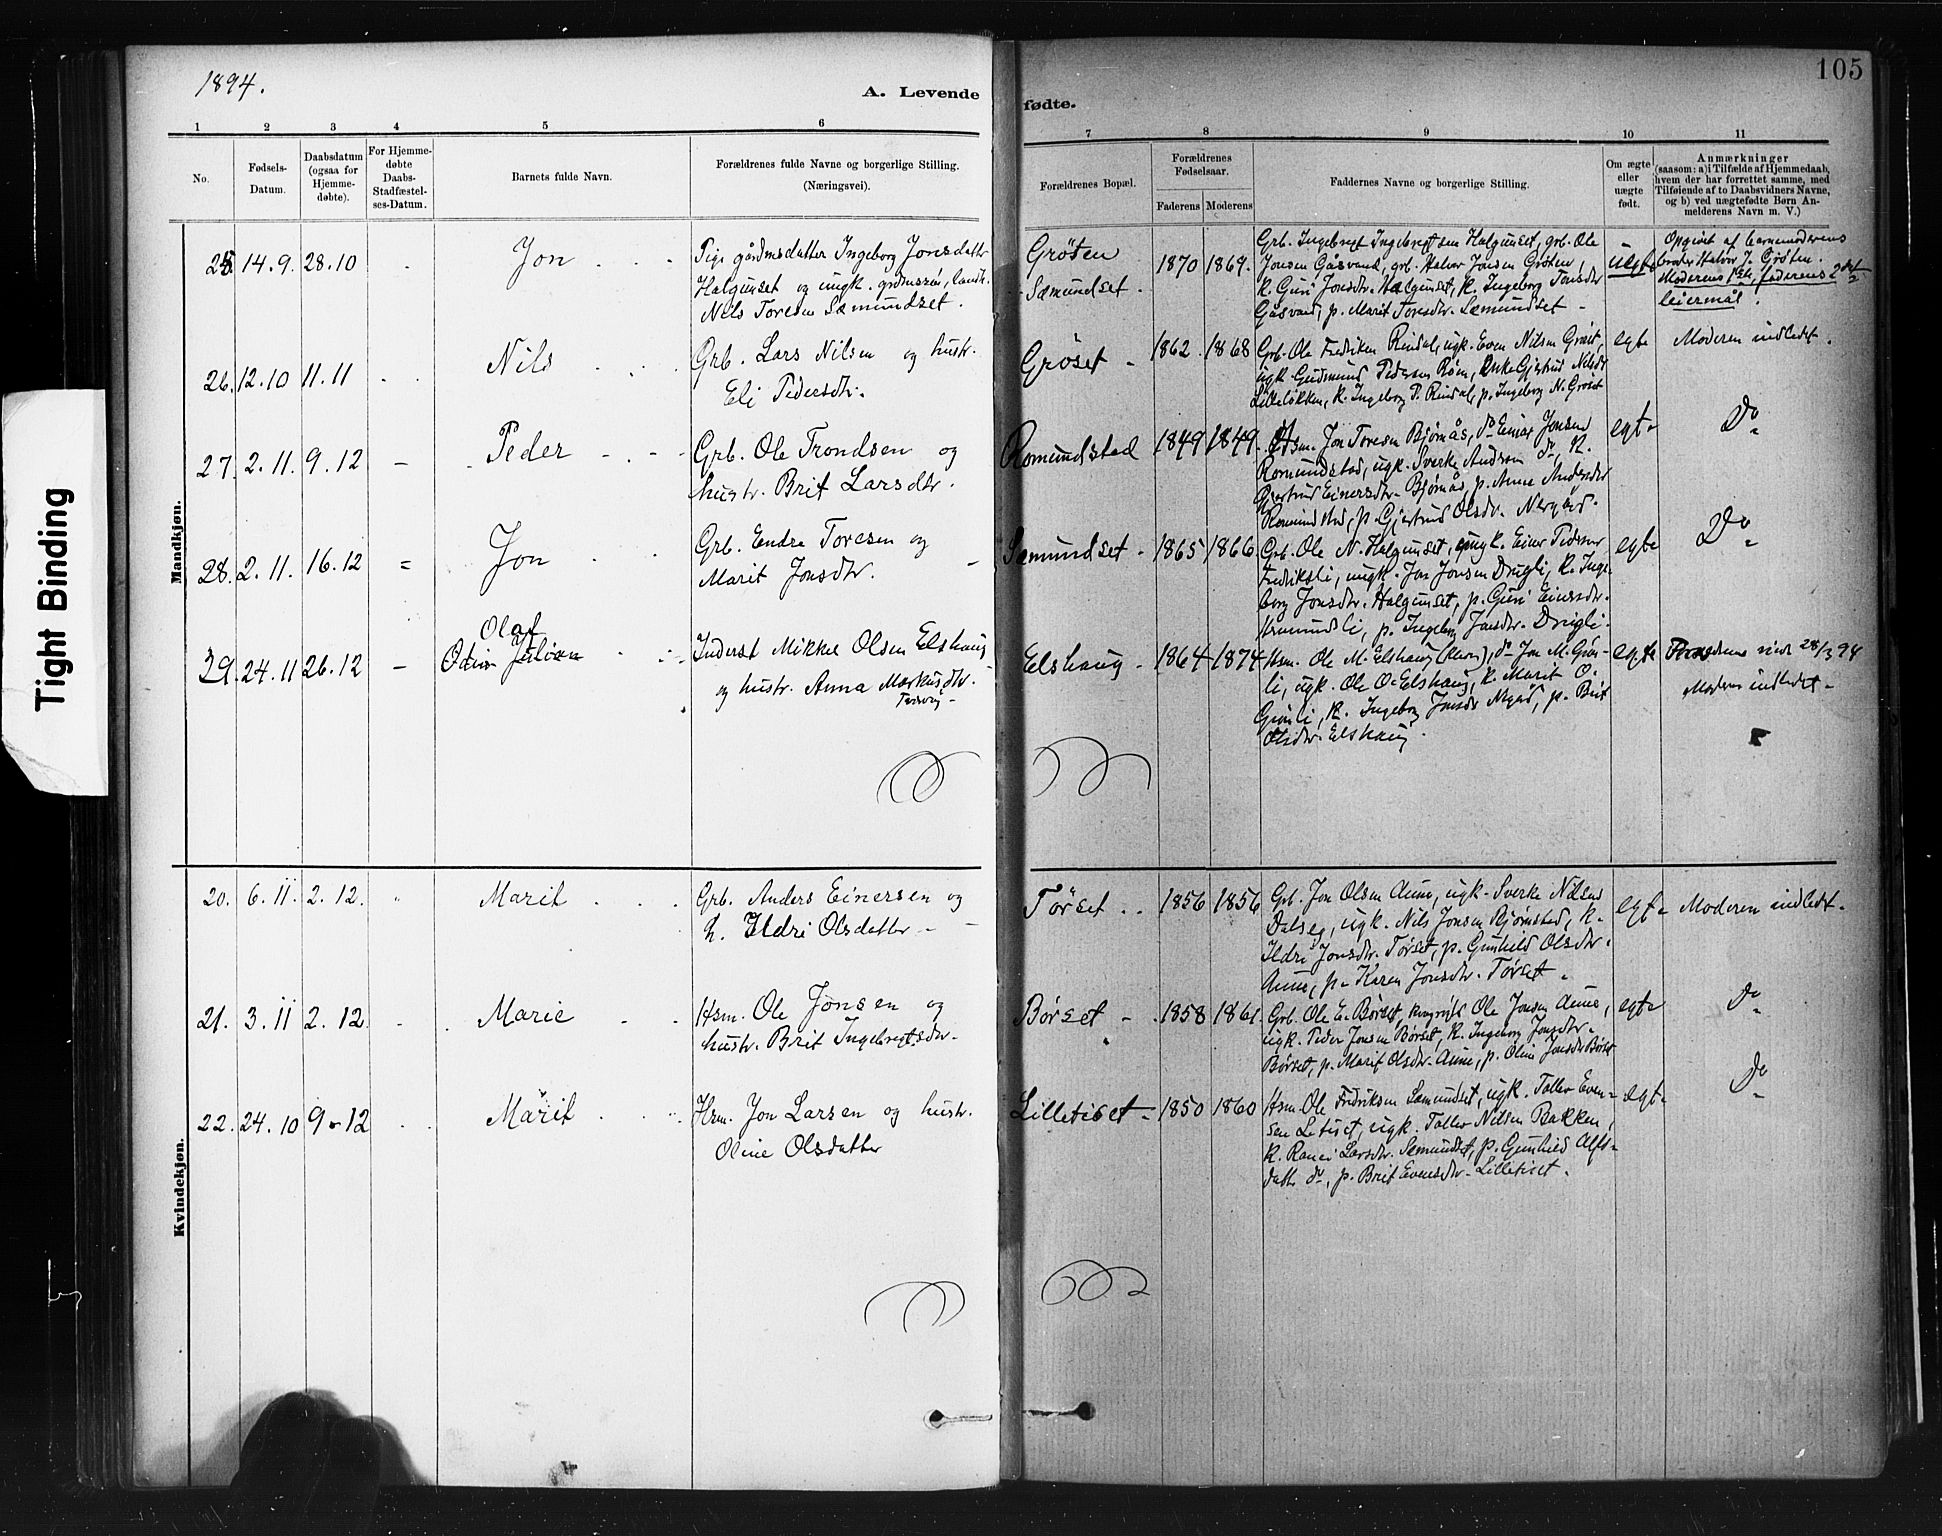 Tight Binding
1894.
A. Levende
fødte.
105
1 2 3 4 5 6 7 8 9 10 11
No.
Fødsels-
Datum.
Daabsdatum
(ogsaa for
Hjemme-
døbte).
For Hjemme-
døbte
Daabs-
Stadfæstel-
ses-Datum.
Barnets fulde Navn.
Forældrenes fulde Navne og borgerlige Stilling.
(Næringsvei).
Forældrenes Bopæl.
Forældrenes
Fødselsaar.
Faderens Moderens
Faddernes Navne og borgerlige Stilling.
Om ægte
eller
uægte
født.
Anmærkninger
(saasom: a) i Tilfælde af Hjemmedaab,
hvem der har forrettet samme, med
Tilføiende af to Daabsvidners Navne,
og b) ved uægtefødte Børn An-
melderens Navn m. V.)
Mandkjøn.
25. 14.9. 28.10 Jon
Pige gårdmsdatter Ingeborg Jonsdatter
Halgunset og ungk. grdmssøn, landh.
Nils Toresen Sæmundset.
Grøten
Sæmundset.
1870 1869.
Grb. Ingebregt Ingebregtsen Halgunset, grb. Ole
Jonsen Gåsvand, grb. Halvor Jonsen Grøten,
k. Guri Jonsdtr. Halgunset, k. Ingeborg Jonsdtr
Gåsvand, p. Marit Toresdtr. Sæmundset
uegte
Opgivet af barnemoderens
broder Halvor J. Grøten.
Moderens 1ste, faderens 2det
leiermål.
26. 12.10 11.11 Nils
Grb. Lars Nilsen og hustr.
Eli Pedersdtr.
Grøset
1862. 1868
Grb. Ole Fredriksen Rindal, ugk. Even Nilsen Grøset,
ugk. Gudmund Pedersen Røen, Enke Gjertrud Nilsdtr
Lilleløkken, k. Ingeborg P. Rindal, p. Ingeborg N. Grøset
egte
Moderen indledet.
27. 2.11. 9.12 Peder
Grb. Ole Trondsen og
hustr. Brit Larsdtr.
Romundstad
1849 1849.
Hsm. Jon Toresen Bjørnås, do Einar Jonsen
Romundstad, ugk. Sverke Andersen do, k.
Gjertrud Einersdtr. Bjørnås, p. Anne Andersdtr
Romundstad, p. Gjertrud Olsdtr. Nergård.
egte
Do
28. 2.11. 16.12 Jon
Grb. Endre Toresen og
Marit Jonsdtr.
Sæmundset
1865 1866
Grb. Ole N. Halgunset, ungk. Einer Pedersen
Fredriksli, ungk. Jon Jonsen Drugli, k. Inge-
borg Jonsdtr. Halgunset, p. Guri Einersdtr.
p. Ingeborg Jonsdtr. Drugli.
egte
Do
Olaf
29. 24.11 26.12 Odin Julian
Inderst Mikkel Olsen Elshaug
og hustr. Anna Markusdtr.
Elshaug
1864 1874
Hsm. Ole M. Elshaug, do Jon M. Grøn-
li, ugk. Ole O. Elshaug, k. Marit O.
Grønli, k. Ingeborg Jonsdtr p. Brit
Olsdtr. Elshaug.
egte
28/3 94
Moderen indledet.
Kvindekjøn.
20. 6.11. 2.12. Marit
Grb. Anders Einersen og
h. Ildri Olsdatter
Tørset
1856 1856
Grb. Jon Olsen Aune, ugk. Sverke Nilsen
Dalseg, ugk. Nils Jonsen Bjørnstad, k.
Ildri Jonsdtr. Tørset, p. Gunhild Olsdtr.
Aune, p. Karen Jonsdtr. Tørset.
egte
Moderen indledt.
21. 3.11 2.12. Marie
Hsm. Ole Jonsen og
hustr. Brit Ingebregtsdtr.
Børset
1858 1861.
Grb. Ole E. Børset, Ole Jonsen Aune,
ugk. Peder Jonsen Børset, k. Ingeborg Jonsdtr.
Børset, p. Marit Olsdtr. Aune, p. Oline Jonsdtr Børset
egte
Do
22. 24.10 9.12 Marit
Hsm. Jon Larsen og hustr.
Oline Olsdatter
Lilletiset
1850 1860
Hsm. Ole Fredriksen Sæmundset, ugk. Toller Even-
sen Letiset, ugk. Toller Nilsen Bakken,
k. Ranei Larsdtr. Sæmundset, p. Gunhild Olfs-
datter do, p. Brit Evensdtr. Lilletiset.
egte
Do